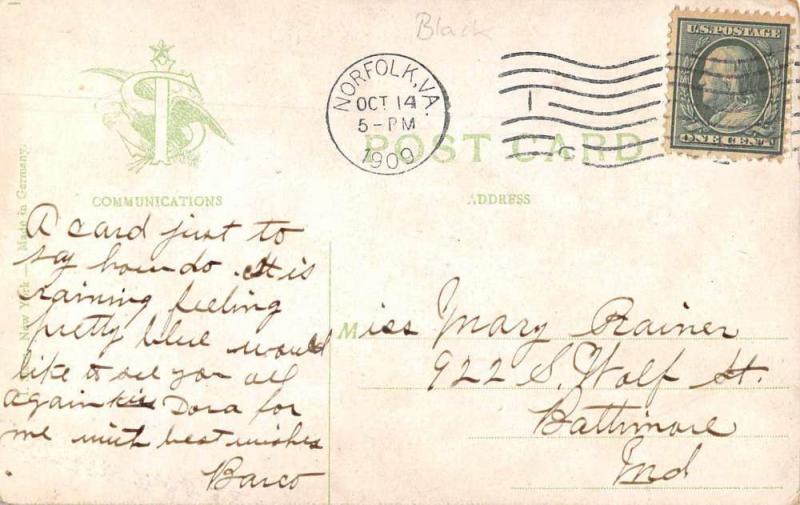 Black
NORFOLK, VA.
OCT 14
5-PM
1909
1
U.S. POSTAGE
ONE CENT
POST CARD
COMMUNICATIONS
ADDRESS
New York — Made in Germany.
A card just to
say howdo. It is
raining feeling
pretty blue would
like to see you all
again kiss Dora for
me with best wishes
Barco
Miss Mary Rainer
922 S. Wolf St.
Baltimore
Md